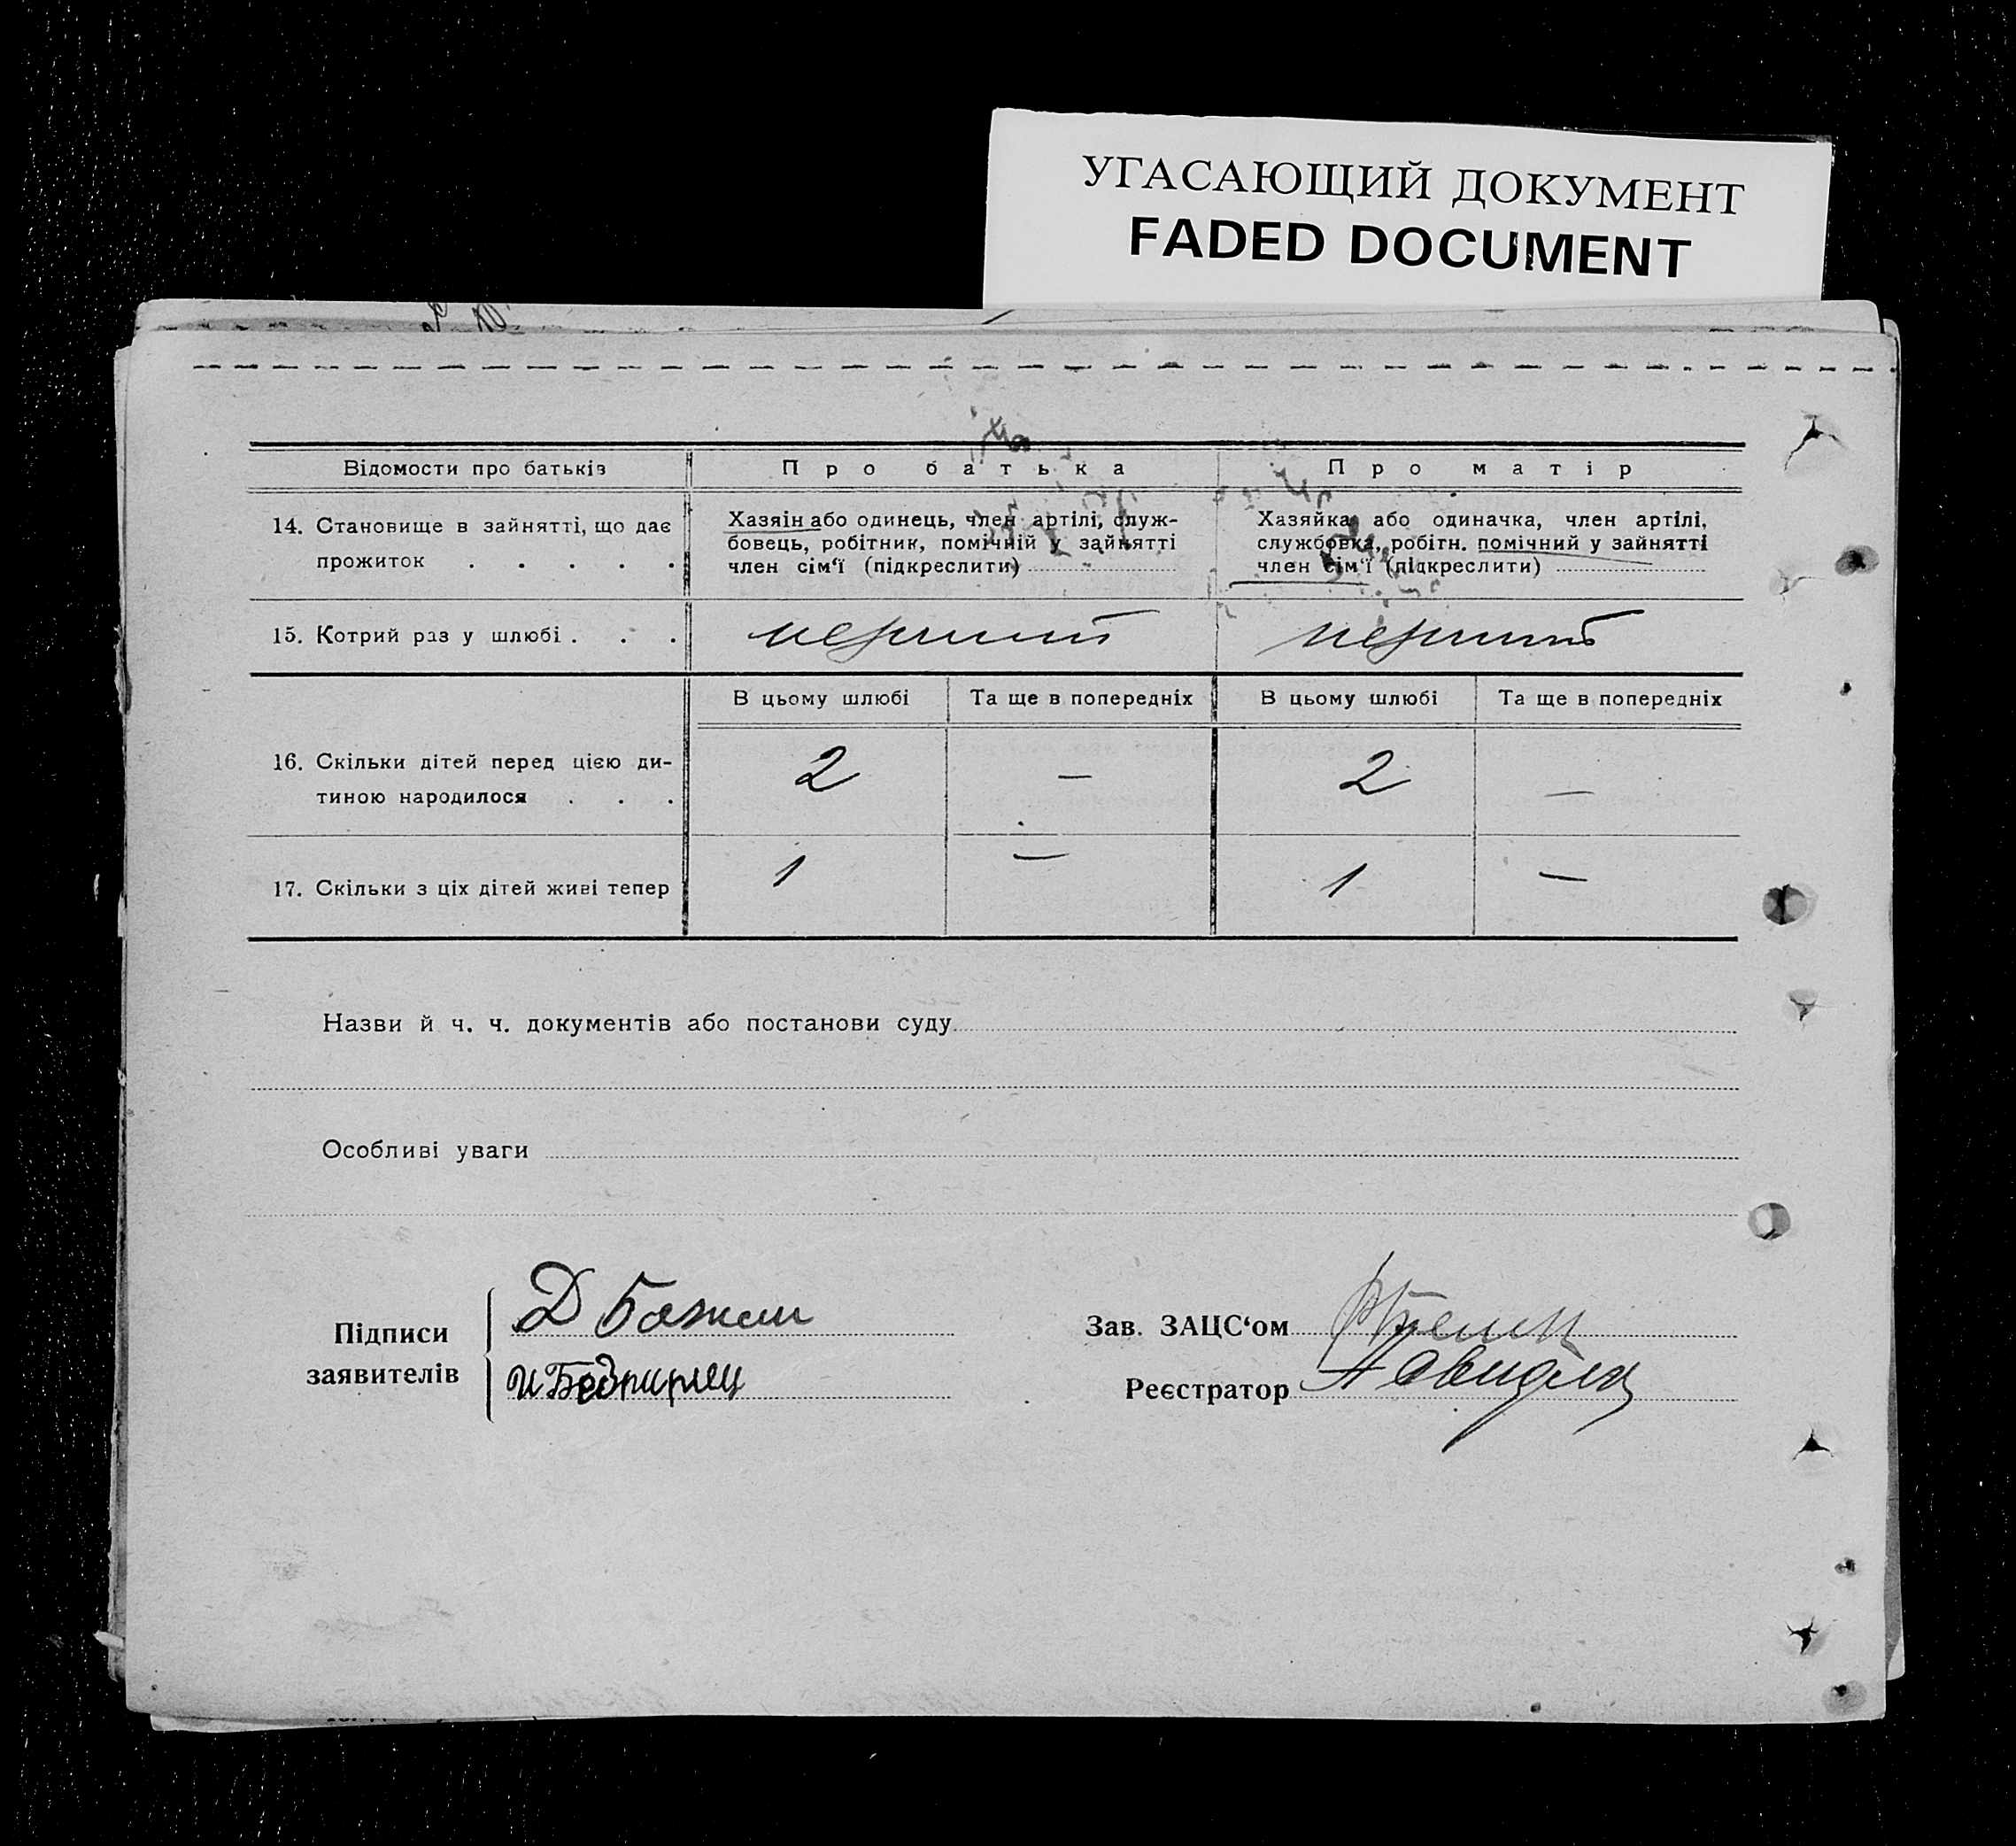 УГАСАЮЩИЙ ДОКУМЕНТ
FADED DOCUMENT
Відомости про батьків
Про батька
Про матір
14. Становище в зайнятті, що дає
прожиток . . . . .
Хазяін або одинець, член артілі, служ-
бовець, робітник, помічній у зайнятті
член сім‘ї (підкреслити)
Хазяйка або одиначка, член артілі,
службовка, робітн. помічний у зайнятті
член сім‘ї (підкреслити)
15. Котрий раз у шлюбі . . .
перший
перший
В цьому шлюбі
Та ще в попередніх
В цьому шлюбі
Та ще в попередніх
16. Скільки дітей перед цією ди-
тиною народилося . . .
2
—
2
—
17. Скільки з ціх дітей живі тепер
1
—
1
—
Назви й ч. ч. документів або постанови суду
Особливі уваги
Підписи
заявителів
Д Бажан
Зав. ЗАЦС‘ом
Реєстратор